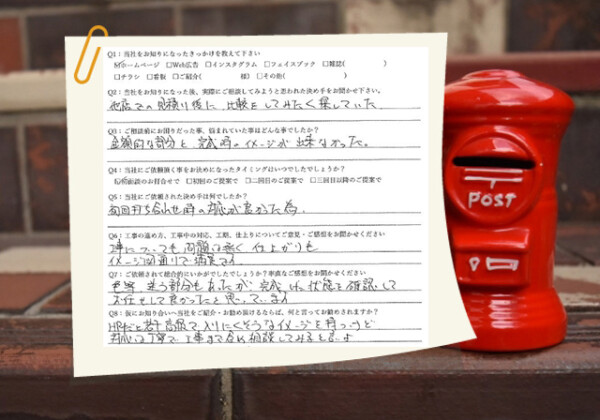 Q1：当社をお知りになったきっかけを教えて下さい
☑ホームページ □Web広告 □インスタグラム □フェイスブック □雑誌( )
□チラシ □看板 □ご紹介( 様) □その他( )
Q2：当社をお知りになった後、実際にご相談してみようと思われた決め手をお聞かせ下さい。
他店での見積り後に、比較をしてみたく探していた
Q3：ご相談前にお困りだった事、悩まれていた事はどんな事でしたか？
金額的な部分と完成時のイメージが出来なかった。
Q4：当社にご依頼頂く事をお決めになったタイミングはいつでしたでしょうか？
☑初回面談のお打合せで □初回のご提案で □二回目のご提案で □三回目以降のご提案で
Q5：当社にご依頼された決め手は何でしたか？
毎回打ち合わせ時の対応が良かった為。
Q6：工事の進め方、工事中の対応、工期、仕上りについてご意見・ご感想をお聞かせください
についても問題は無く仕上がりも
イメージ図通りで満足です
Q7：ご依頼されて総合的にいかがでしたでしょうか？率直なご感想をお聞かせください
迷う部分もあったが完成した状態を確認して
お任せして良かったと思っています
Q8：仮にお知り合いへ当社をご紹介・お勧め頂けるならば、何と言ってお勧めされますか？
HPだと若干高級で入りにくそうなイメージを持つけど
対応は丁寧で、工事まで含め相談してみると良いよ
POST